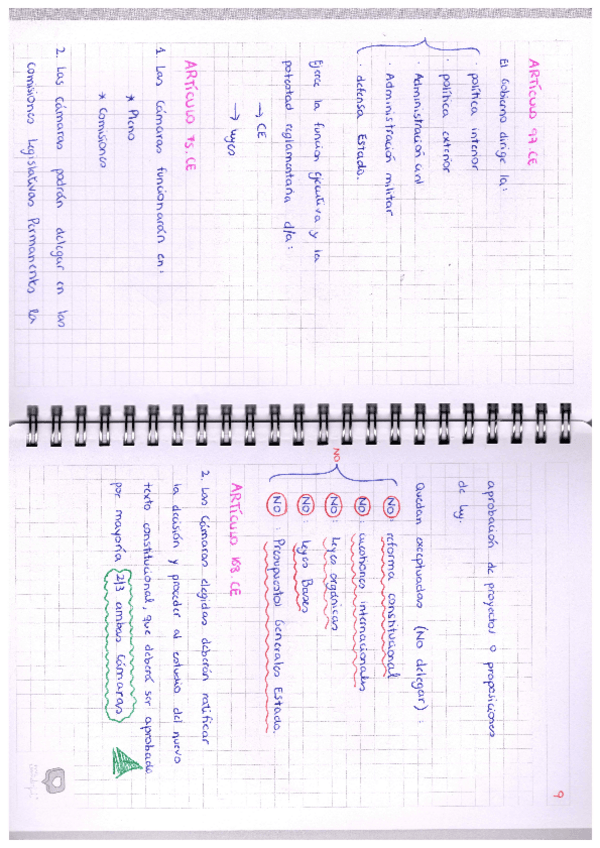 ARTÍCULO 97. CE
El Gobierno dirige la:
· política interior
· política exterior
· Administración civil
· Administración militar
· defensa Estado.
Ejerce la función ejecutiva y la
potestad reglamentaria d/a:
→ CE
→ leyes
ARTÍCULO 75. CE
1. Las Cámaras funcionarán en:
* Pleno
* Comisiones
2. Las Cámaras podrán delegar en las
comisiones Legislativas Permanentes la
9
aprobación de proyectos o proposiciones
de ley.
Quedan exceptuadas (No delegar):
NO
NO: reforma constitucional
NO: cuestiones internacionales
NO: leyes orgánicas
NO: leyes Bases
NO: Presupuestos Generales Estado.
ARTÍCULO 168 CE
2. Las Cámaras elegidas deberán ratificar
la decisión y proceder al estudio del nuevo
texto constitucional, que deberá ser aprobado
por mayoría 2/3 ambas Cámaras